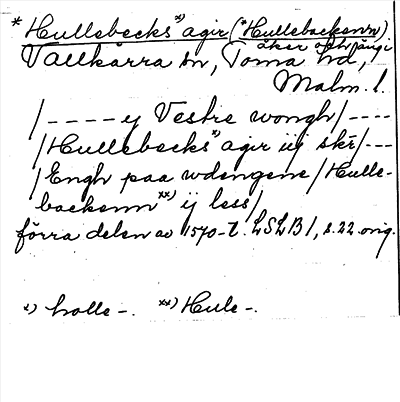 * Hullebecks*) agir (*Hullebackenn).
åker och äng i
Vallkärra sn, Torna hd,
Malm. l.
/ – – – – y Vestre wongh / – – – –
/ Hullebecks*) agir iij skr / – – –
/ Engh paa wdengene / Hulle-
backenn **) ij less /
förra delen av 1570-t. LSLB 1, s. 22 orig.
*) holle –. **) Hule –.